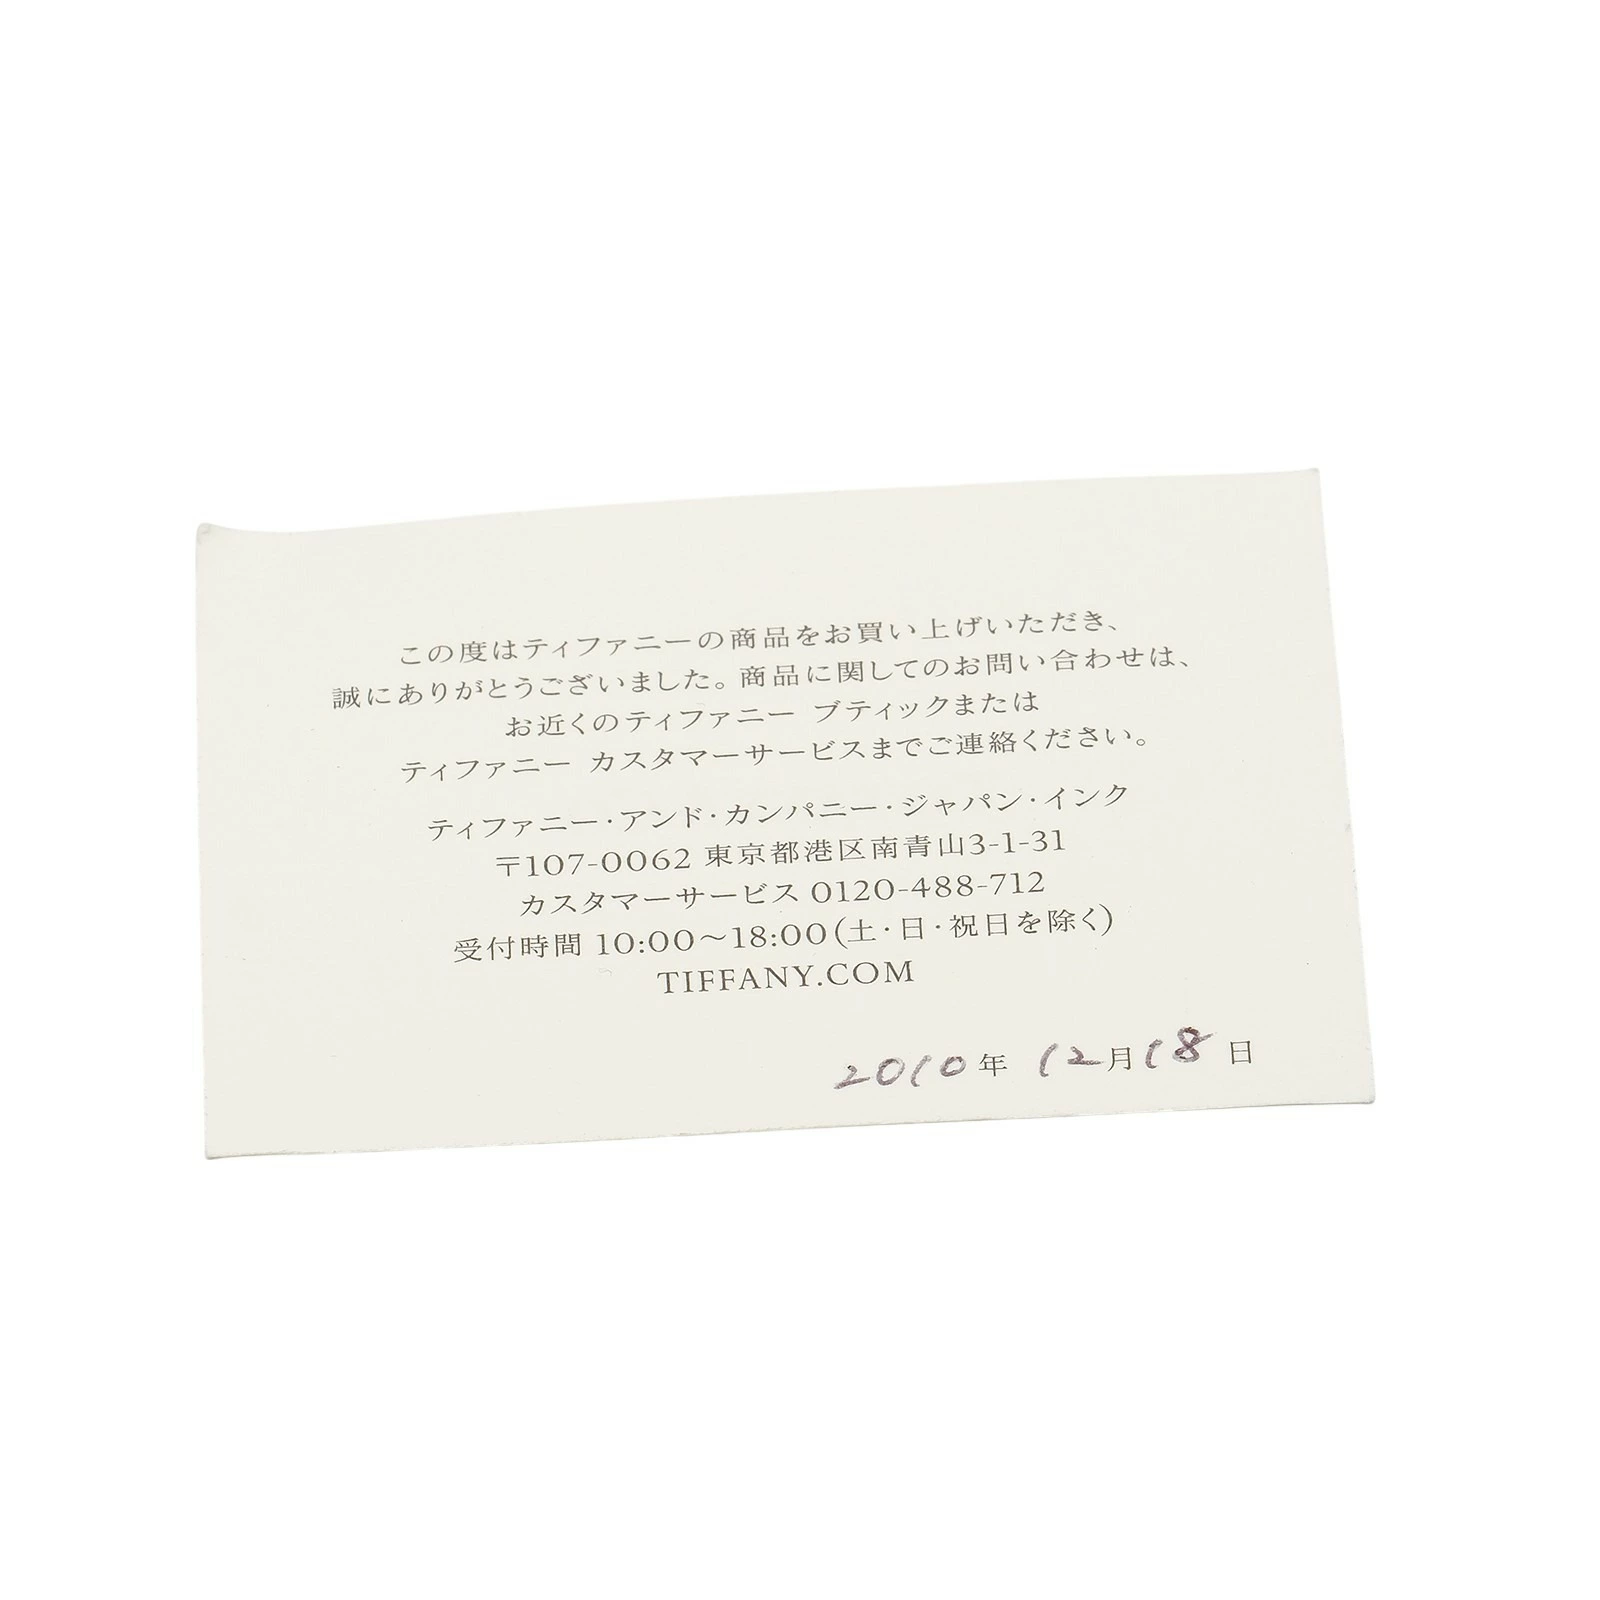 この度はティファニーの商品をお買い上げいただき、
誠にありがとうございました。商品に関してのお問い合わせは、
お近くのティファニー ブティックまたは
ティファニー カスタマーサービスまでご連絡ください。
ティファニー・アンド・カンパニー・ジャパン・インク
〒107-0062 東京都港区南青山3-1-31
カスタマーサービス 0120-488-712
受付時間 10:00～18:00(土・日・祝日を除く)
TIFFANY.COM
2010年 12月18日